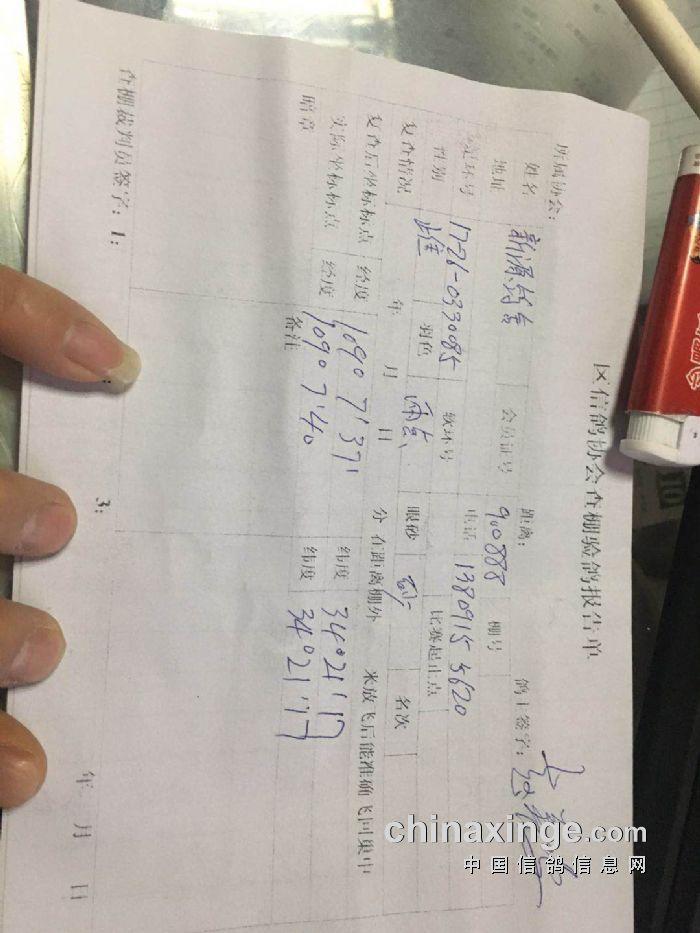 区信鸽协会查棚验鸽报告单
所属协会： 距离： 鸽主签字：
姓名 新源鸽舍 会员证号 900888 棚号
地址 电话 13809155620
环号 17-26-0330085 软环号 比赛起止点
性别 雄 羽色 雨点 眼砂 砂 名次
复查情况 年 月 日 分 在距离棚外 米放飞后能准确飞回巢中
复查后坐标标点 经度 109°7'37" 纬度 34°21'17
实际坐标标点 经度 109°7'40 纬度 34°21'17
暗章 备注
查棚裁判员签字：1： 3：
年 月 日
chinaxinge.com
中国信鸽信息网